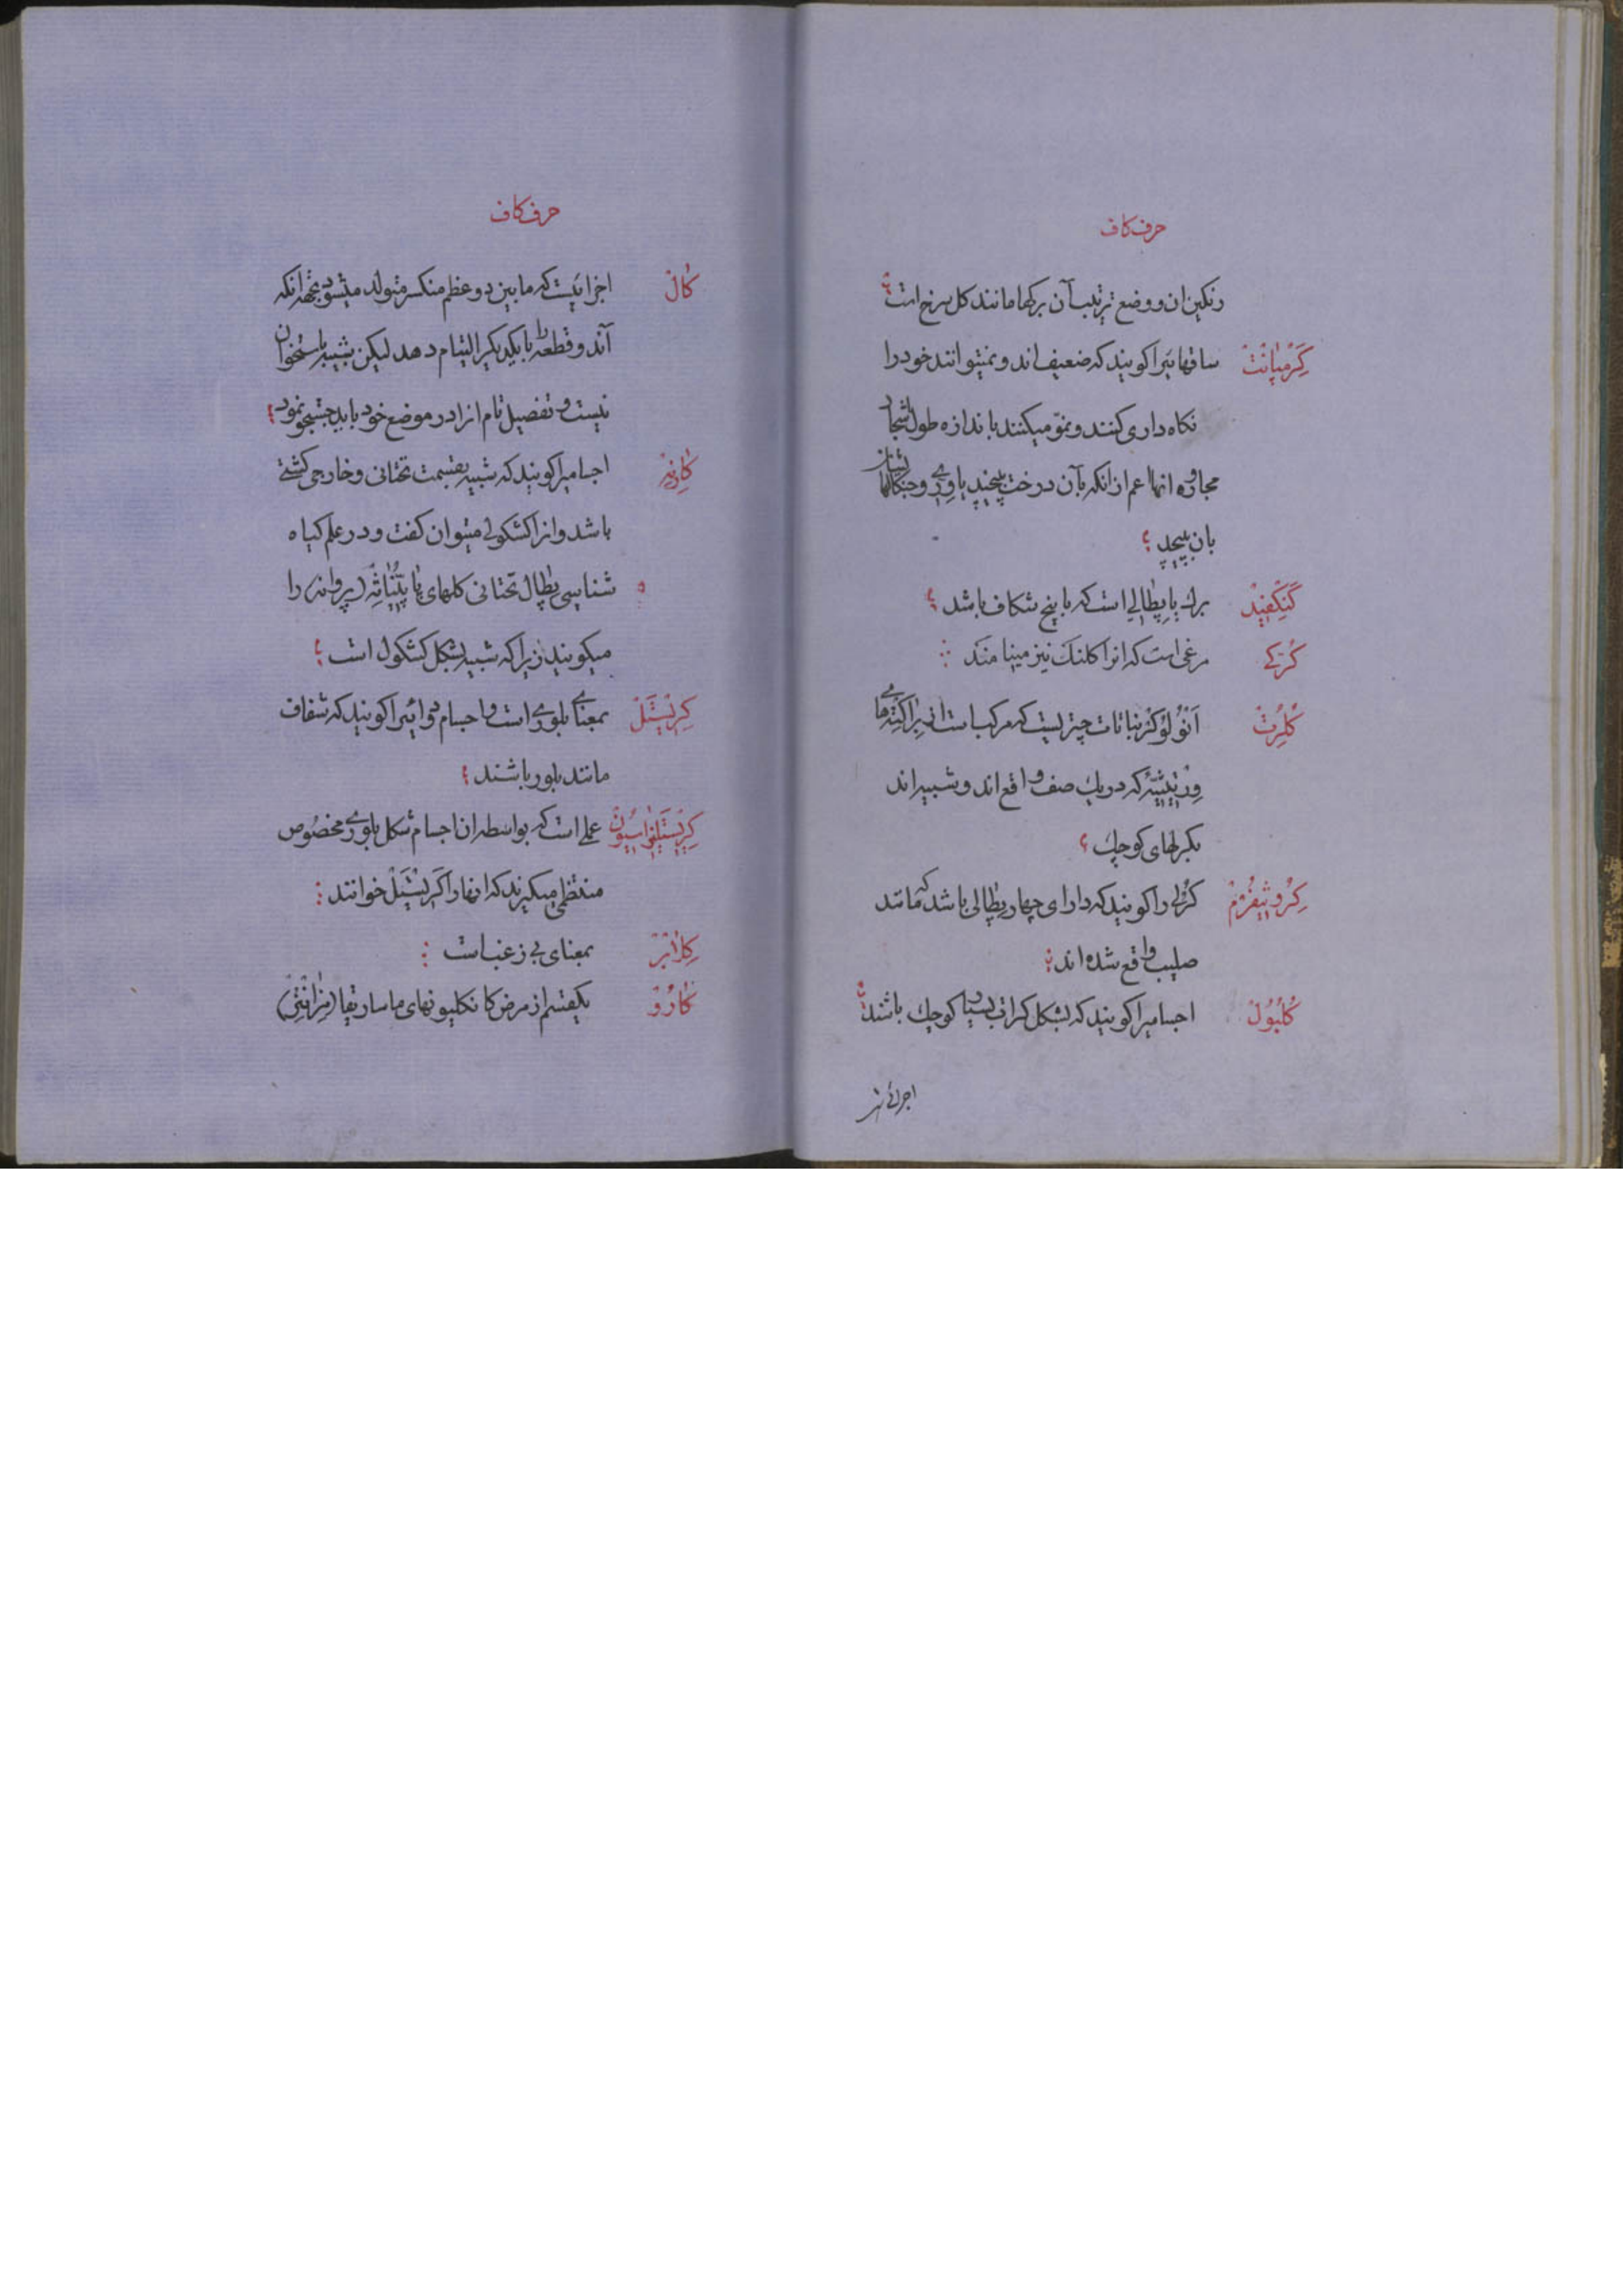 حرف کاف
رنکین ان و وضع ترتیب آن برکها مانند کل سرخ است
کرمپانت ساقهائیرا کویند که ضعیف اند و نمیتوانند خود را
نکاه داری کنند و نمو میکنند باندازه طول اشجار
مجاوره انها اعم از انکه بآن درخت پیچیند یا
بان پیچد
کنکفید برك یا پطالی است که با پنج شکاف باشد
کرکی مرغی است که انرا کلنك نیز مینامند
کلرت نباتات چتریست که مرکب است از براکته های
ورتیسیه که در یك صف واقع اند و شبیه اند
بکرلهای کوچك
کروثیفرم کرلی را کویند که دارای چهار پطالی باشد که مانند
صلیب واقع شده اند
کلبول اجسامیرا کویند که بشکل کرات بسیار کوچك باشند
اجزائیست
حرف کاف
کال اجزائیست که مابین دو عظم منکسر متولد میشود بجهه انکه
آندو قطعه را با یکدیکر التیام دهد لیکن شبیه باستخوان
نیست و تفصیل تام انرا در موضع خود باید جستجو نمود
کارنه اجسامیرا کویند که شبیه بقسمت تحتانی و خارجی کشتی
باشد و انرا کشکولی میتوان کفت و در علم کیاه
شناسی پطال تحتانی کلهای (پروانه) را
میکویند زیرا که شبیه بشکل کشکول است
کریستل بمعنای بلوری است و اجسام دوائیرا کویند که شفاف
مانند بلور باشند
کریستلیزاسیون عملی است که بواسطه ان اجسام شکل بلوری مخصوص
منتظمی میکیرند که انها را کریستل خوانند
کلابر بمعنای بی زغب است
کارو یکقسم از مرض کانکلیونهای ماساریقا (مزانتری)